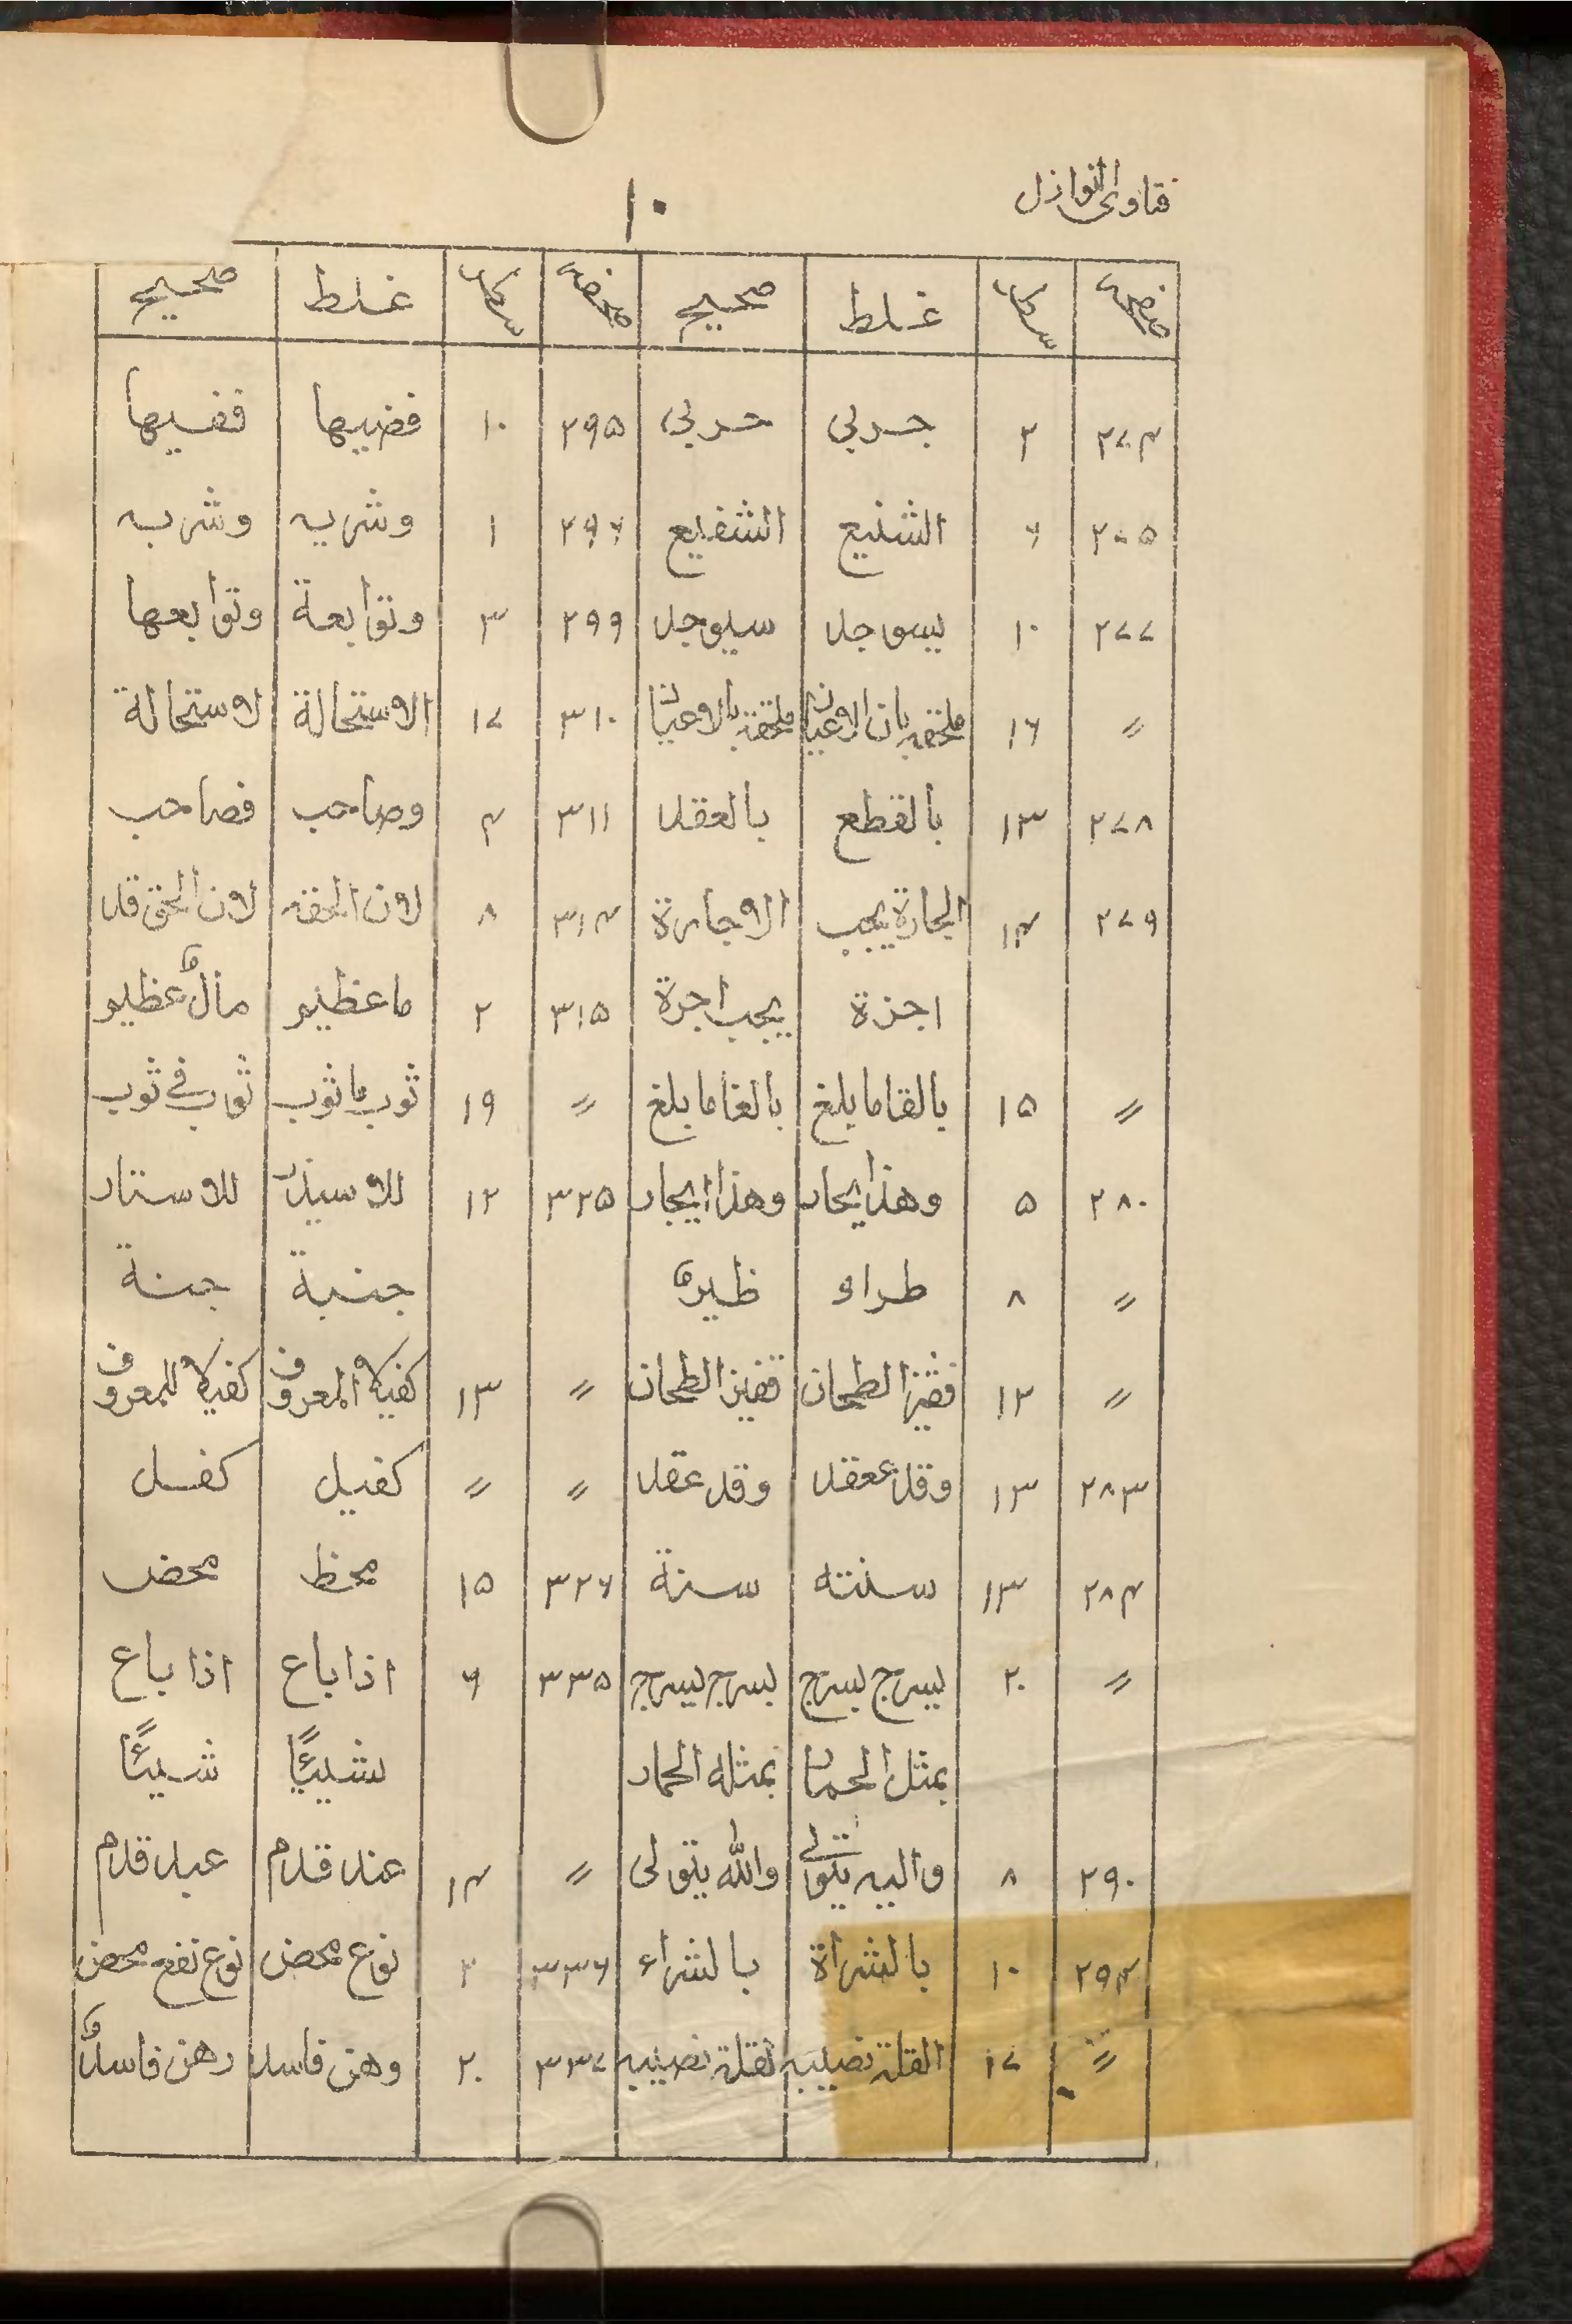 فتاوى النوازل
١٠
صفحه سطر غلط صحيح صفحه سطر غلط صحيح
٢٧٤ ٢ جربى حربى ٢٩٥ ١٠ فضيها ففيها
٢٧٥ ٦ الشنيع الشفيع ٢٩٦ ١ وشريه وشربه
٢٧٧ ١٠ يسوجد سيوجد ٢٩٩ ٣ وتوابعة وتوابعها
〃 ١٦ ملحقه بان الاعيان ملحقة بالاعيان ٣١٠ ١٧ الاستحالة لاستحالة
٢٧٨ ١٣ بالقطع بالعقد ٣١١ ٤ وصاحب فصاحب
٢٧٩ ١٤ الجارة يجب الاجارة ٣١٤ ٨ لان الحقه لان الحق قد
اجزة يجب اجرة ٣١٥ ٢ ما عظيم مالٌ عظيم
〃 ١٥ بالقاما بلغ بالغا ما بلغ 〃 ١٩ ثوب ما ثوب ثوب في ثوب
٢٨٠ ٥ وهذا يحار وهذا ايجار ٣٢٥ ١٢ للاسيذر للاستار
〃 ٨ طراو ظيرة جنية جنة
〃 ١٢ فقيز الطحان قفيز الطحان 〃 ١٣ كفيلا المعروف كفيلا للمعروف
٢٨٣ ١٣ وقد ععقد وقد عقد 〃 〃 كفيل كفل
٢٨٤ ١٣ سنته سنة ٣٢٦ ١٥ محظ محض
〃 ٢٠ ليسرج بسرج بسرج ليسرج ٣٣٥ ٦ اذا باع اذا باع
بمثل الحمار بمثله الحمار بشيئًا شيئًا
٢٩٠ ٨ واليه يتولى والله يتولى 〃 ١٤ عند قدم عبد قدم
٢٩٤ ١٠ بالشراة بالشراء ٣٣٦ ٢ نوع محض نوع نفع محض
〃 ١٧ القلة نصيبه لقلة نصيبه ٣٣٧ ٢٠ وهن فاسد رهن فاسدٌ